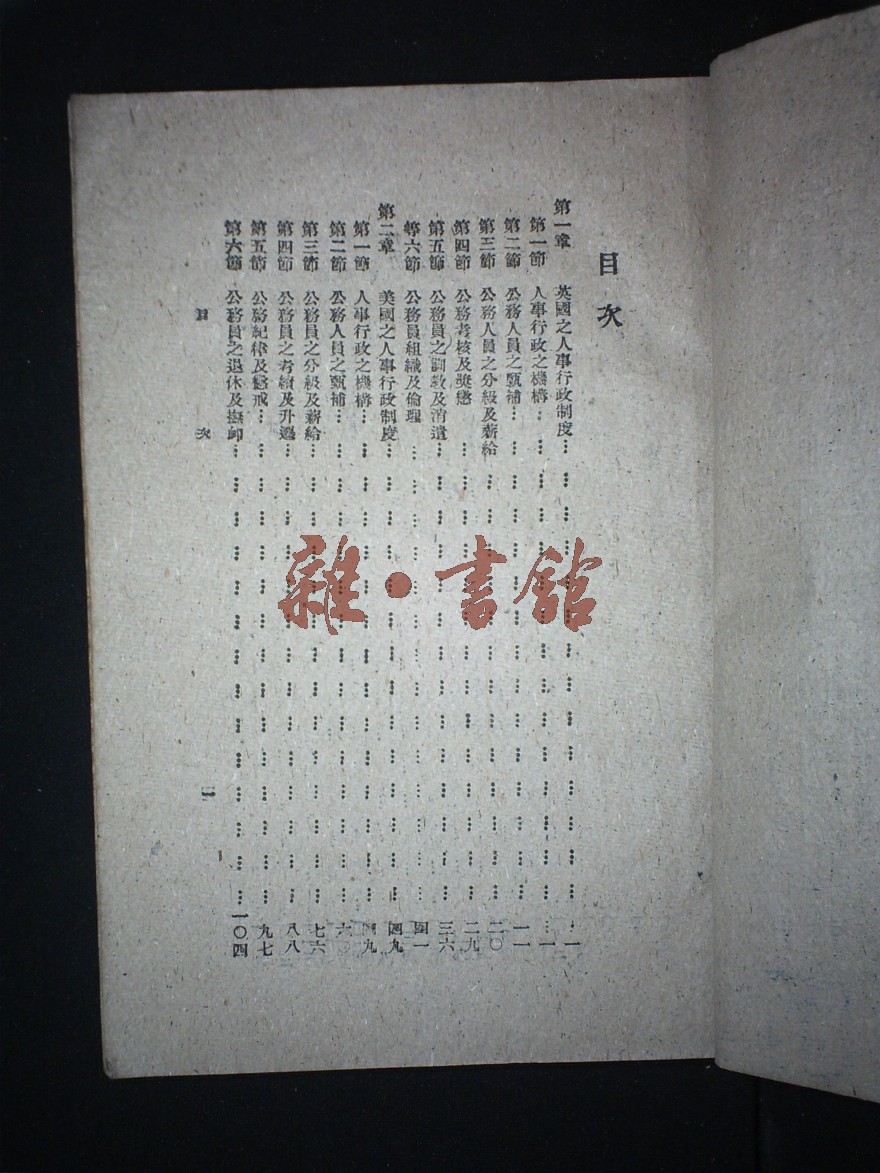 目次
第一章 英國之人事行政制度…………………………………………一
第一節 人事行政之機構…………………………………………一
第二節 公務人員之甄補…………………………………………一一
第三節 公務人員之分級及薪給…………………………………………二〇
第四節 公務考核及獎懲…………………………………………二九
第五節 公務員之訓教及消遣…………………………………………三六
第六節 公務員組織及倫理…………………………………………四一
第二章 美國之人事行政制度…………………………………………四九
第一節 人事行政之機構…………………………………………四九
第二節 公務人員之甄補…………………………………………六〇
第三節 公務員之分級及薪給…………………………………………七六
第四節 公務員之考績及升遷…………………………………………八八
第五節 公務紀律及懲戒…………………………………………九七
第六節 公務員之退休及撫卹…………………………………………一〇四
目次
雜·書館